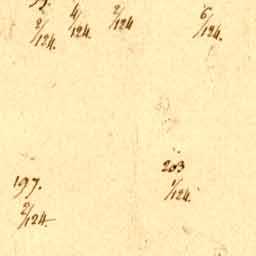 2/124. 4/124. 2/124 6/124.
203
1/124.
197.
2/124.